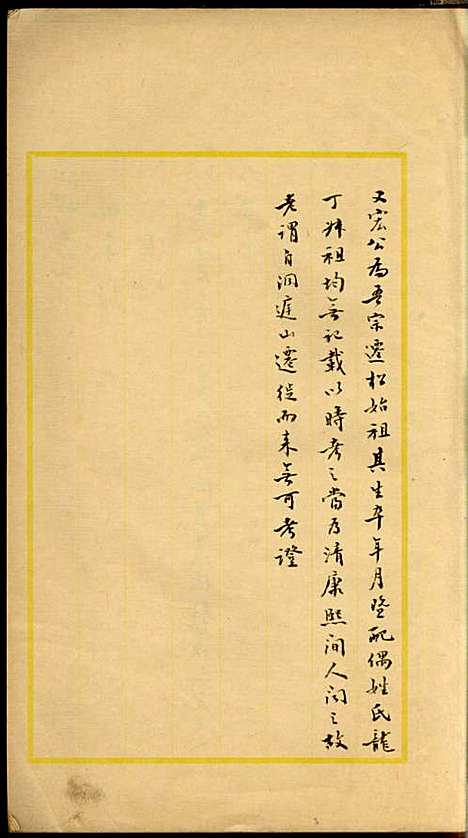 又宏公為吾宗遷松始祖其生卒年月暨配偶姓氏龍
丁妣祖均無記載以時考之當為清康熙間人聞之故
老謂自洞庭山遷徙而来無可考證